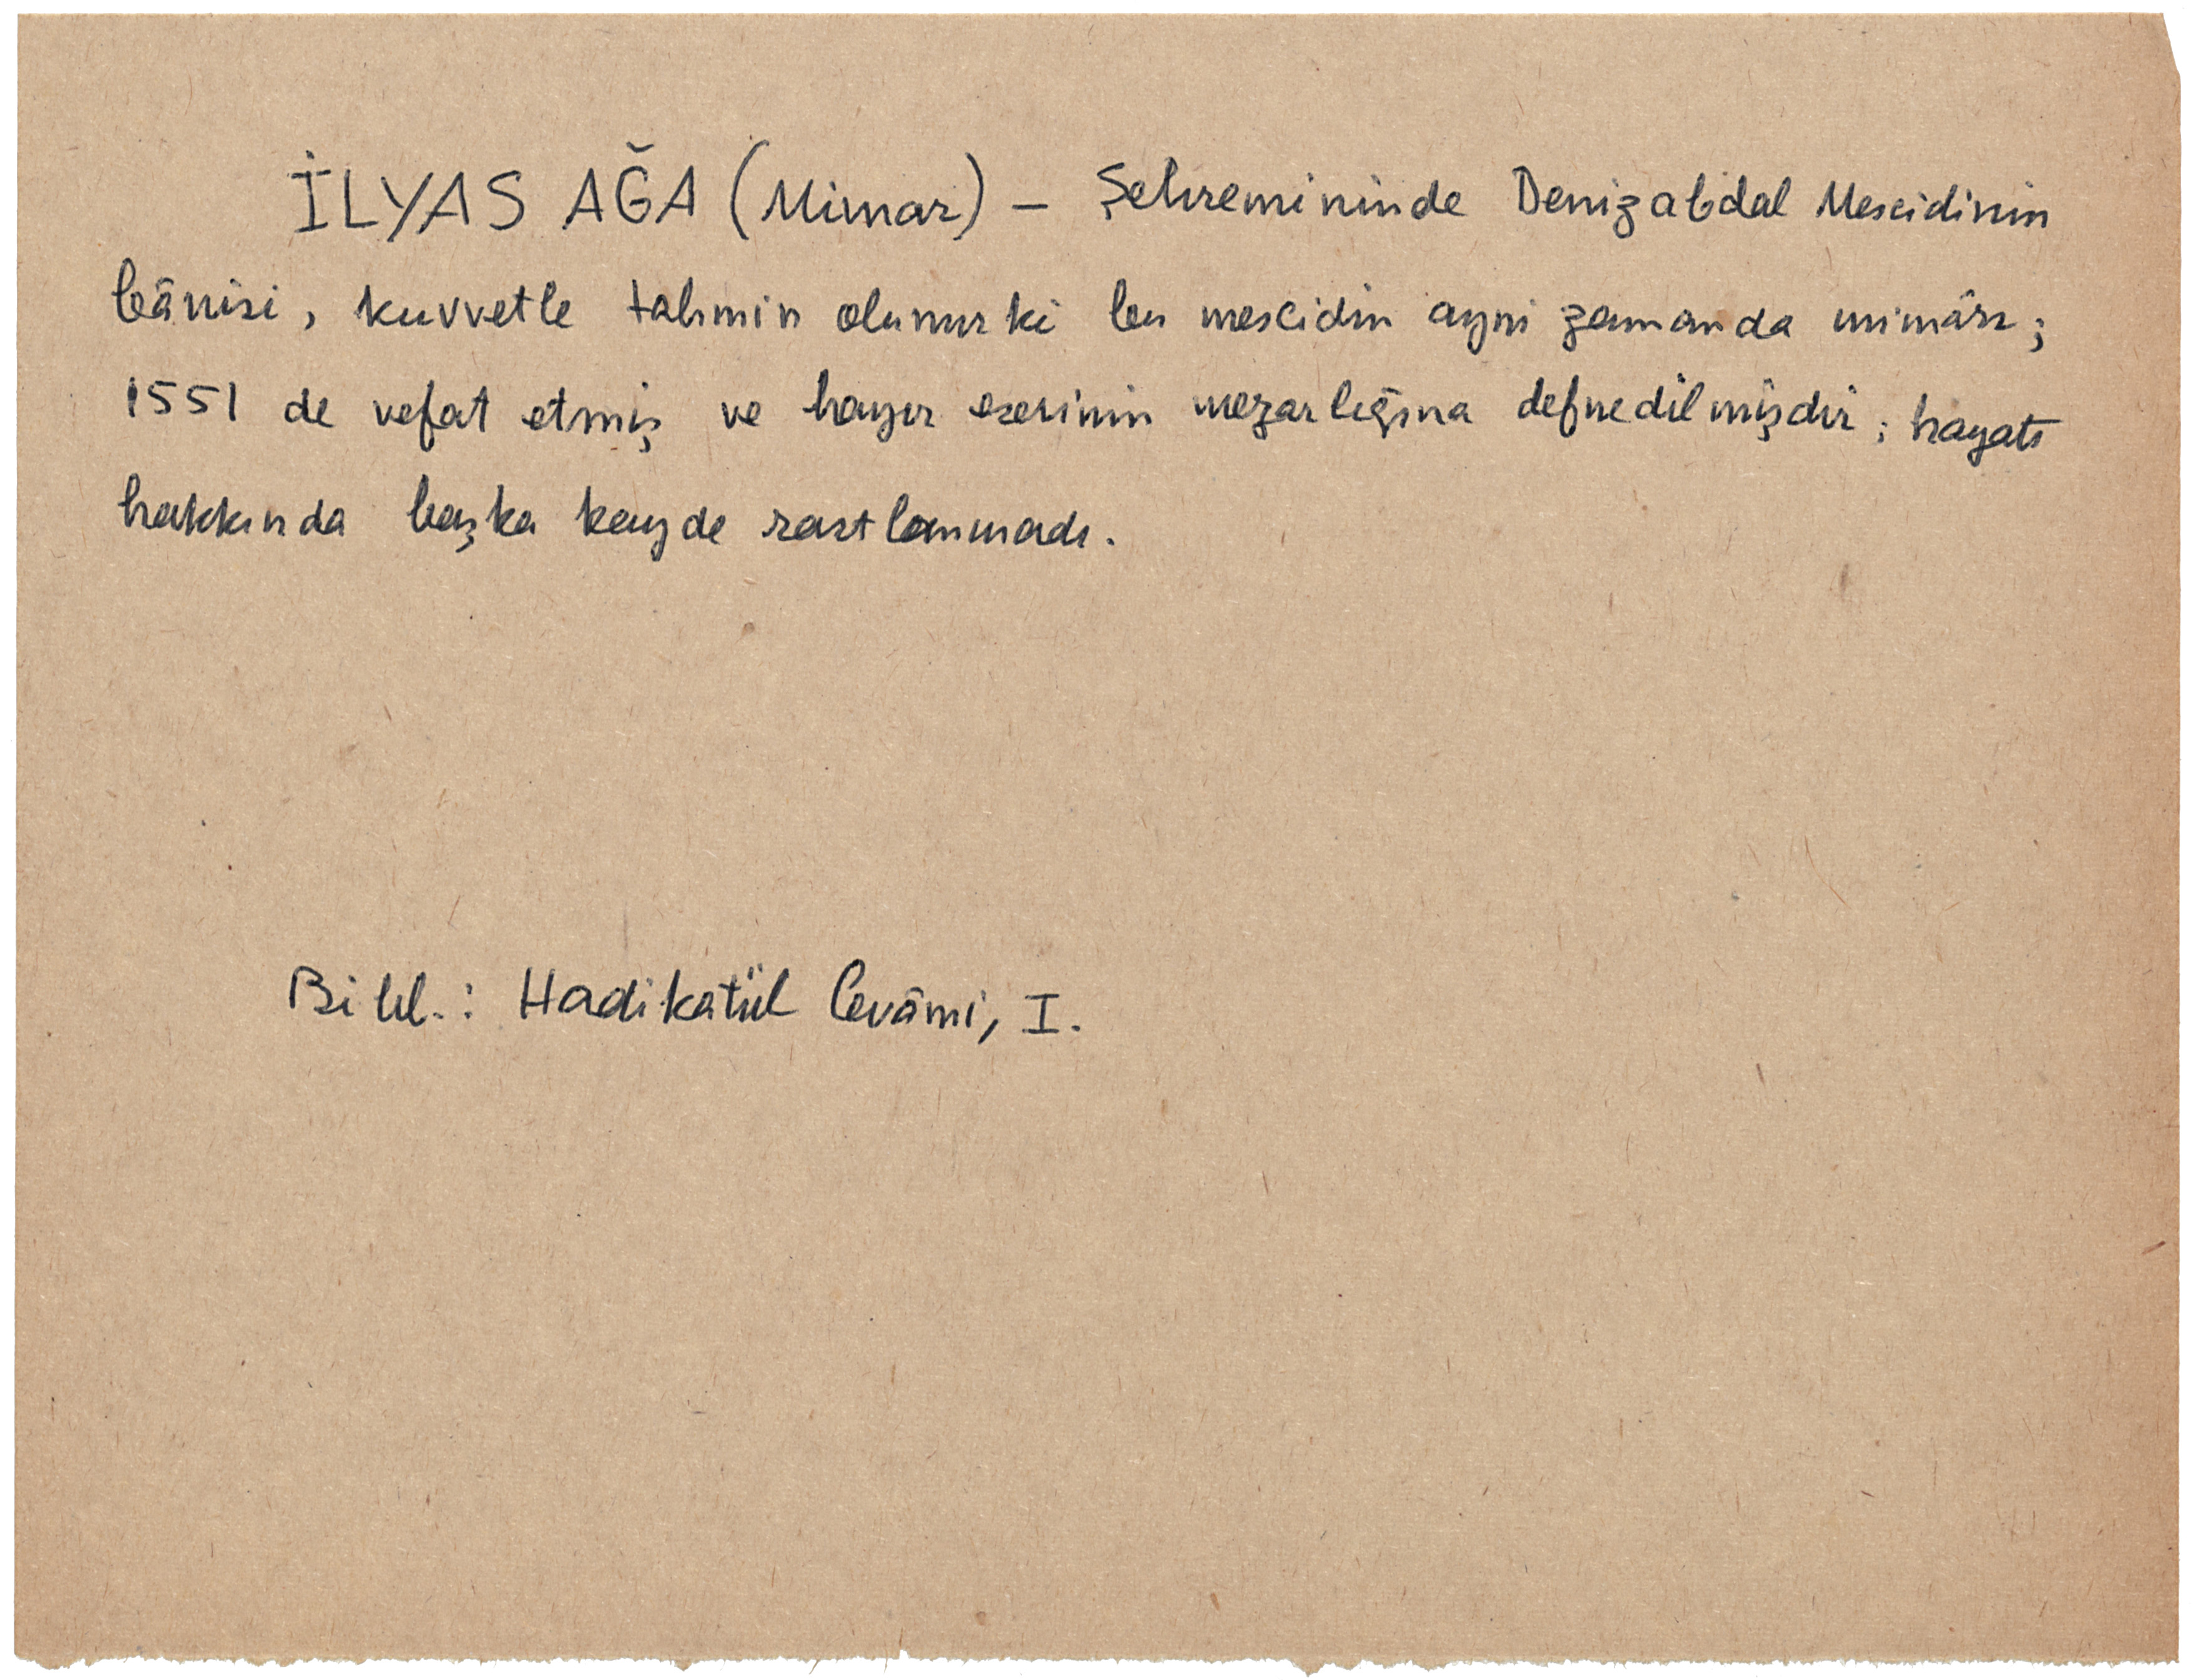 İLYAS AĞA (Mimar) – Şehremininde Denizabdal Mescidinin
bânisi, kuvvetle tahmin olunur ki bu mescidin ayni zamanda mimârı;
1551 de vefat etmiş ve hayır eserinin mezarlığına defnedilmişdir; hayatı
hakkında başka kayde rastlanmadı.
Bibl.: Hadikatül Cevâmi, I.